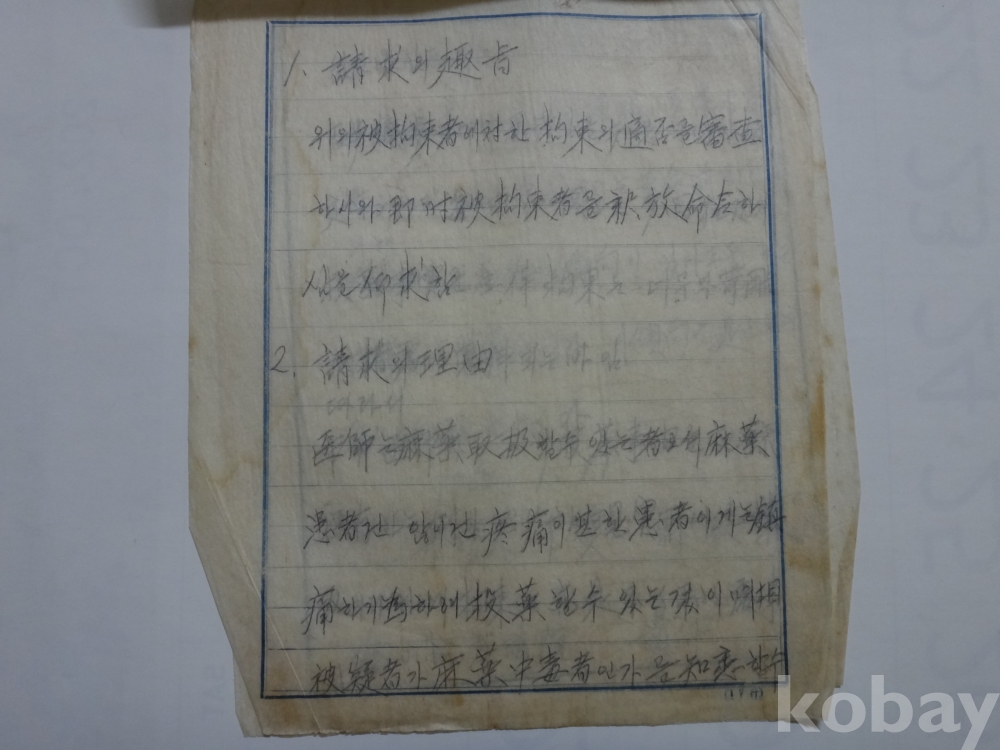 1. 請求의 趣旨
위의 被拘束者에 対한 拘束의 適否를 審査
하시와 即時 被拘束者를 釈放 命令하
심을 仰求함
2. 請求의 理由
따라서
医師는 麻薬 取扱할수 있는 者로서 麻薬
患者건 아니건 疼痛이 甚한 患者에게는 鎮
痛하기 爲하여 投薬할수 있는 것이며
被疑者가 麻薬中毒者인가 를 知悉 할수
kobay